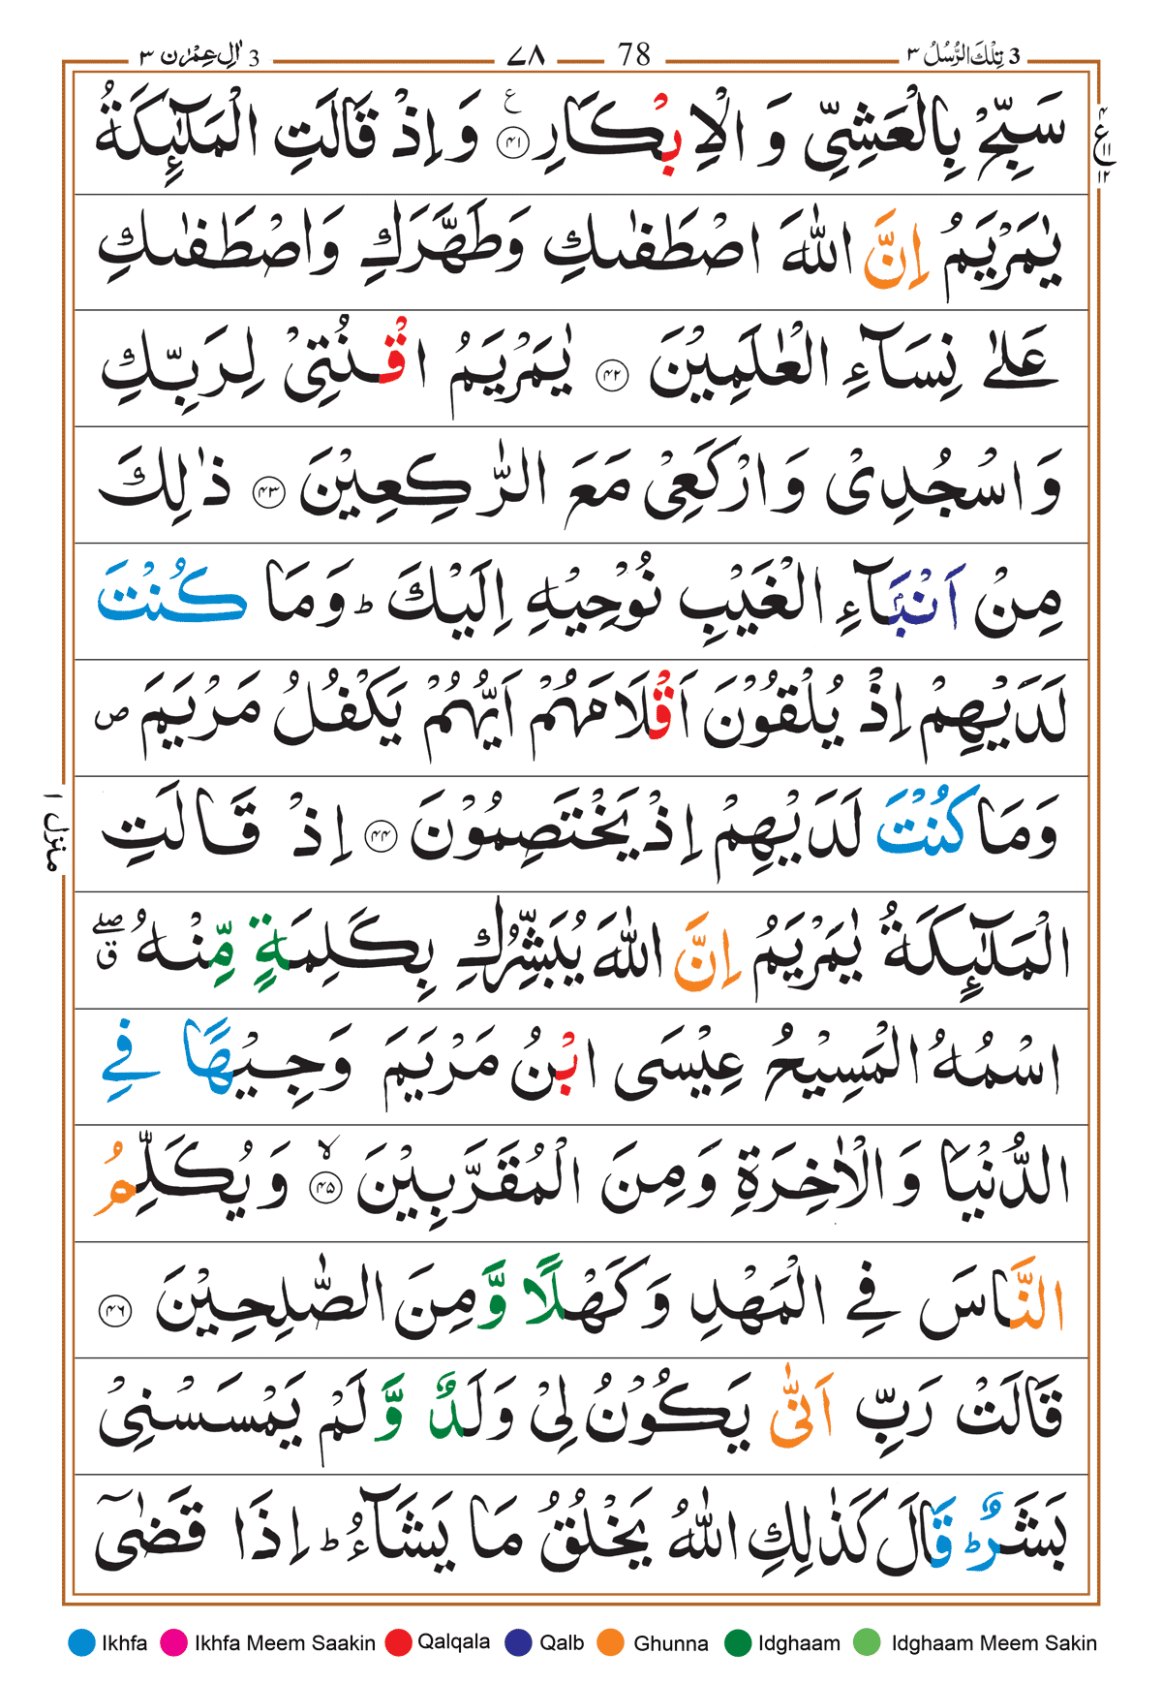 3 اٰلِ عِمْرٰن ٣
٧٨ 78
3 تِلْكَ الرُّسُلُ ٣
سَبِّحْ بِالْعَشِيِّ وَ الْاِبْكَارِ ع ﴿۴۱﴾ وَ اِذْ قَالَتِ الْمَلٰٓئِكَةُ
ع ۴ ۱۱ ۱۲
يٰمَرْيَمُ اِنَّ اللّٰهَ اصْطَفٰىكِ وَطَهَّرَكِ وَاصْطَفٰىكِ
عَلٰى نِسَآءِ الْعٰلَمِيْنَ ﴿۴۲﴾ يٰمَرْيَمُ اقْنُتِىْ لِرَبِّكِ
وَاسْجُدِىْ وَارْكَعِىْ مَعَ الرّٰكِعِيْنَ ﴿۴۳﴾ ذٰلِكَ
مِنْ اَنْۢبَآءِ الْغَيْبِ نُوْحِيْهِ اِلَيْكَ ؕ وَمَا كُنْتَ
لَدَيْهِمْ اِذْ يُلْقُوْنَ اَقْلَامَهُمْ اَيُّهُمْ يَكْفُلُ مَرْيَمَ ص
وَمَا كُنْتَ لَدَيْهِمْ اِذْ يَخْتَصِمُوْنَ ﴿۴۴﴾ اِذْ قَالَتِ
منزل ۱
الْمَلٰٓئِكَةُ يٰمَرْيَمُ اِنَّ اللّٰهَ يُبَشِّرُكِ بِكَلِمَةٍ مِّنْهُ ۖق
اسْمُهُ الْمَسِيْحُ عِيْسَى ابْنُ مَرْيَمَ وَجِيْهًا فِى
الدُّنْيَا وَالْاٰخِرَةِ وَمِنَ الْمُقَرَّبِيْنَ ۙ ﴿۴۵﴾ وَيُكَلِّمُ
النَّاسَ فِى الْمَهْدِ وَكَهْلًا وَّمِنَ الصّٰلِحِيْنَ ﴿۴۶﴾
قَالَتْ رَبِّ اَنّٰى يَكُوْنُ لِىْ وَلَدٌ وَّلَمْ يَمْسَسْنِىْ
بَشَرٌ ؕ قَالَ كَذٰلِكِ اللّٰهُ يَخْلُقُ مَا يَشَآءُ ؕ اِذَا قَضٰٓى
Ikhfa Ikhfa Meem Saakin Qalqala Qalb Ghunna Idghaam Idghaam Meem Sakin